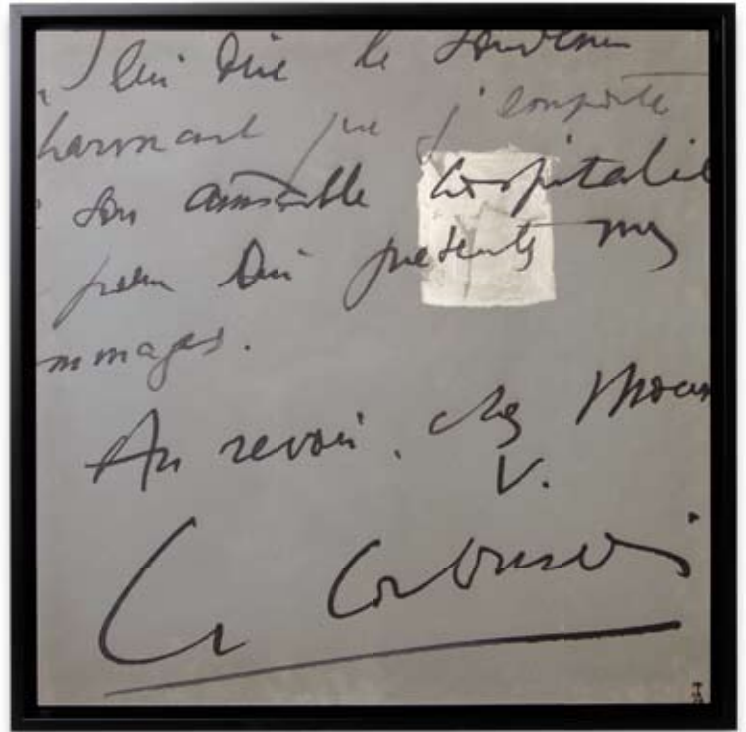 lui dire le souvenir
harmant que j'emporte
son aimable hospitalit
pour lui présenter mes
mmages.
Au revoir, cher Mons
V.
Le Corbusier